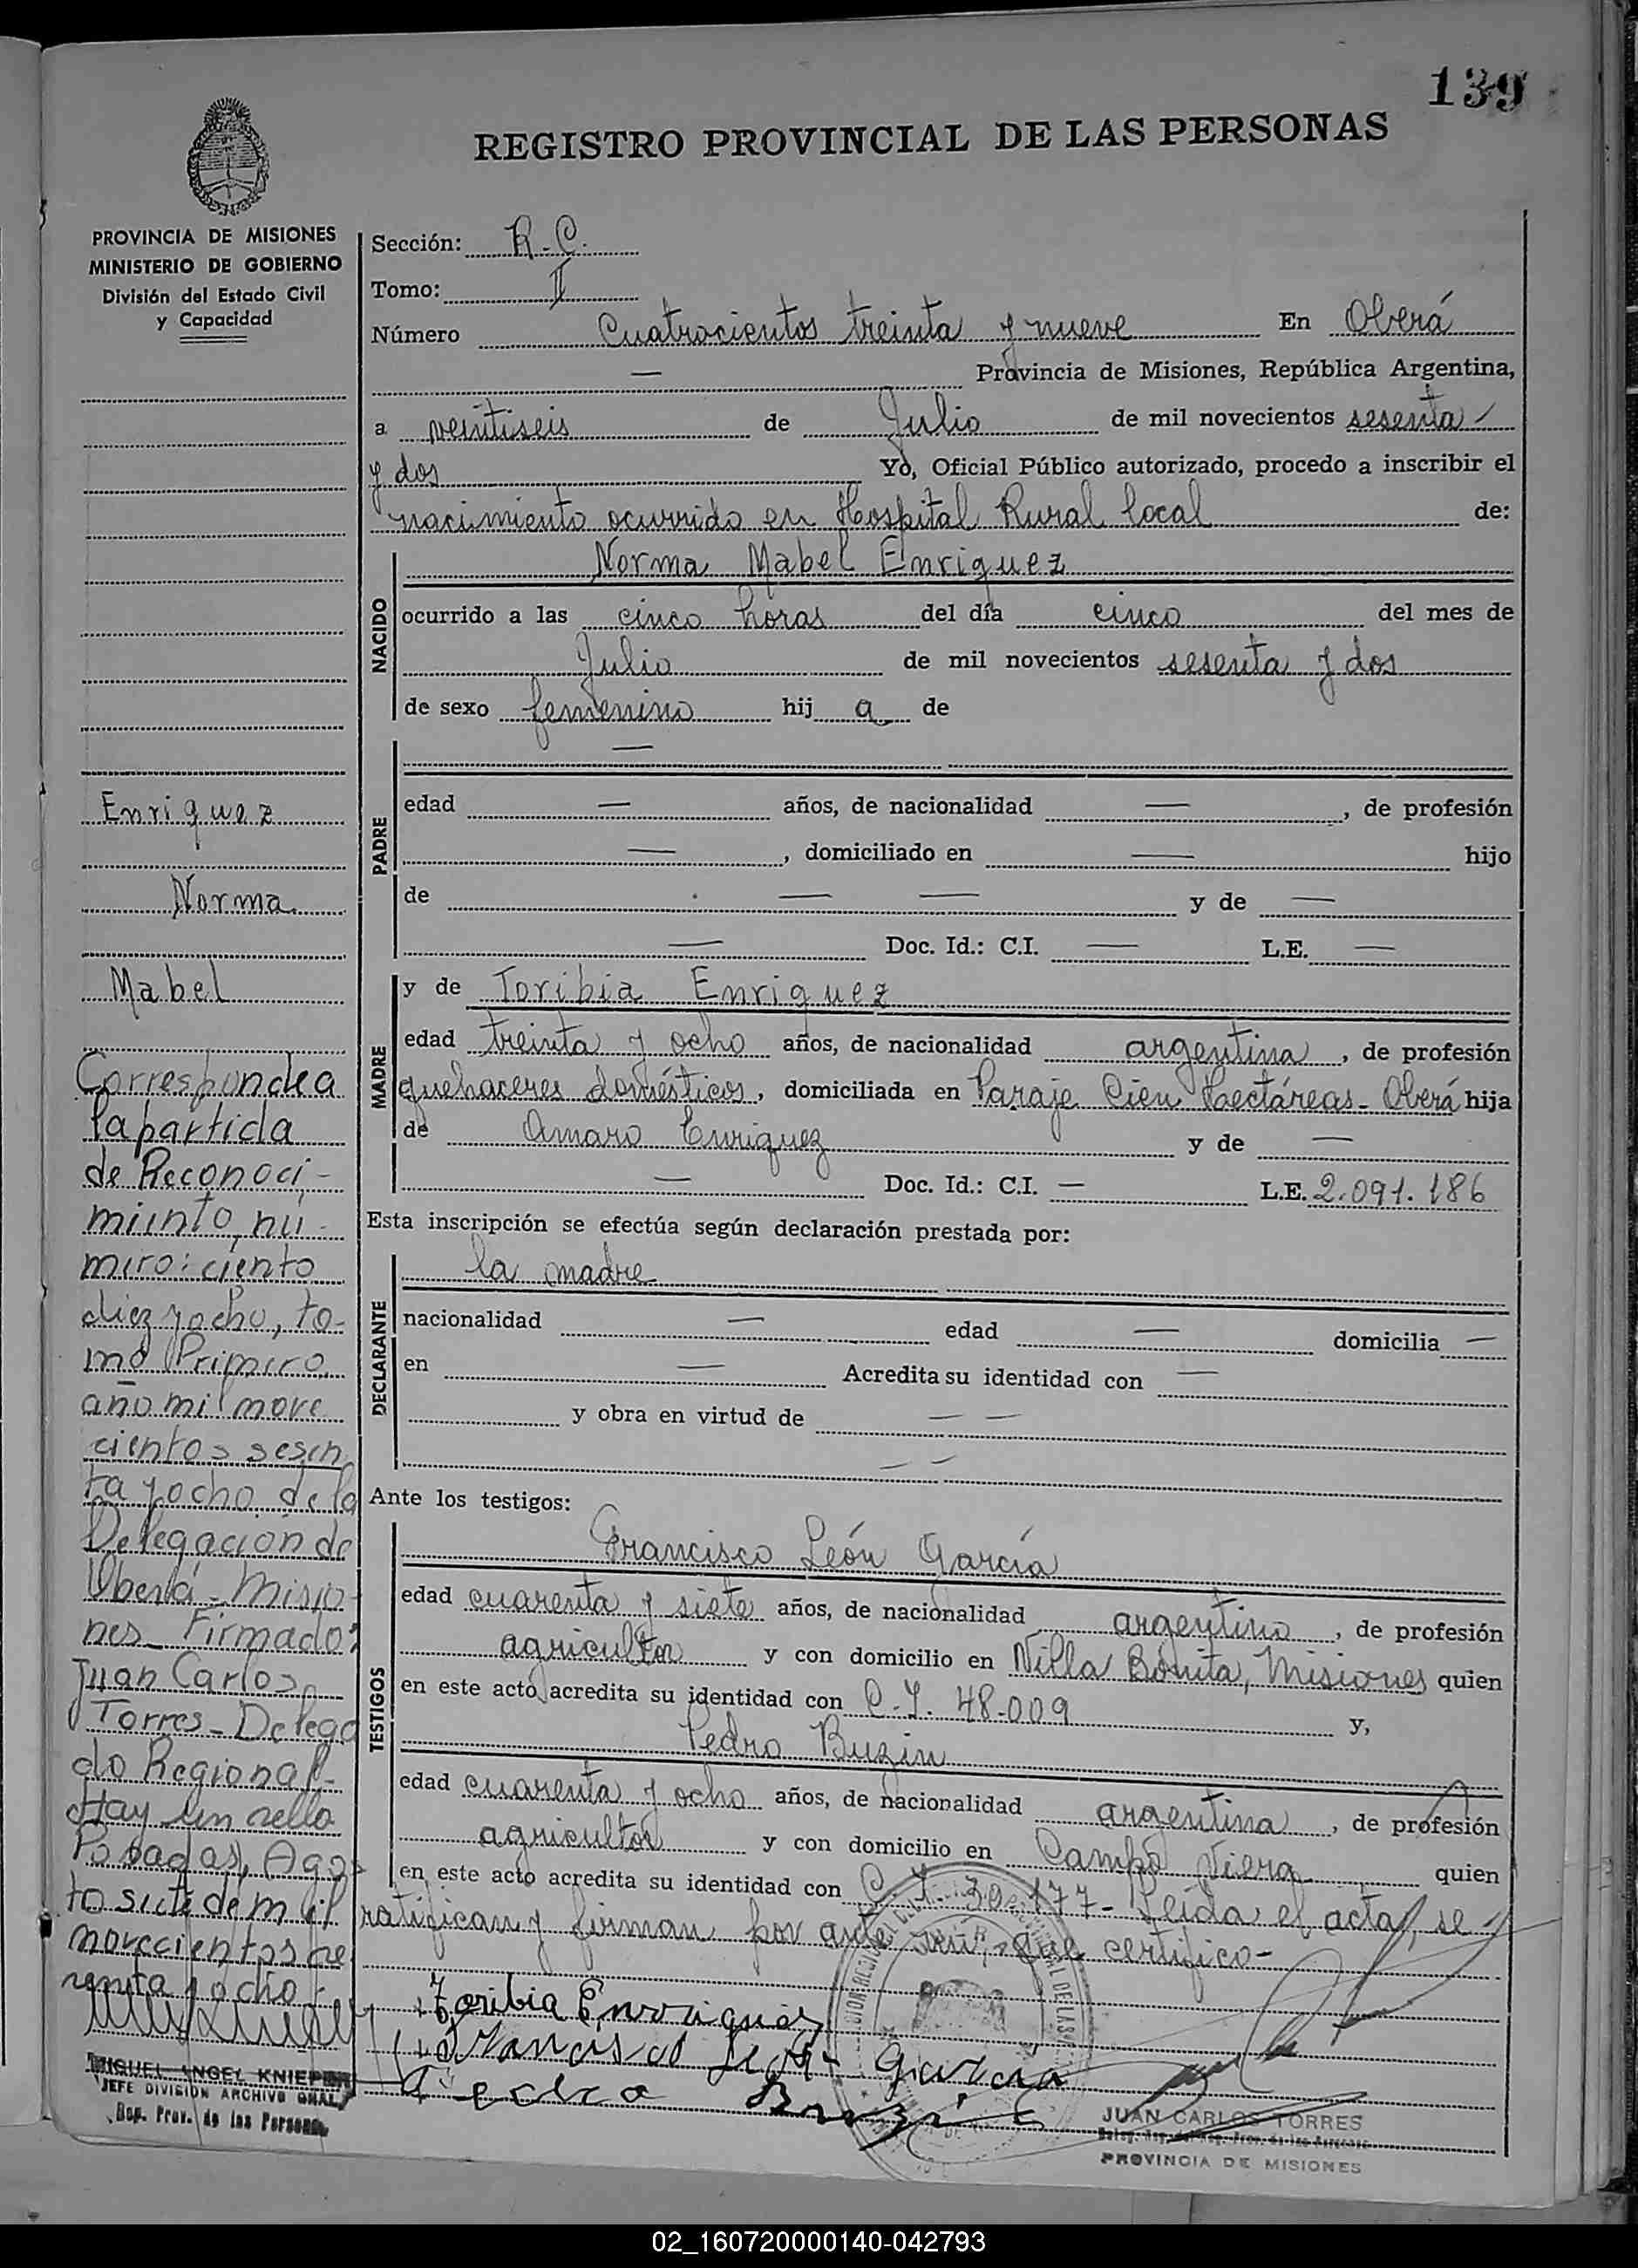 139
REGISTRO PROVINCIAL DE LAS PERSONAS
PROVINCIA DE MISIONES
MINISTERIO DE GOBIERNO
División del Estado Civil
y Capacidad
Enriquez
Norma
Mabel
Corresponde a
la partida
de Reconoci-
miento, nú-
mero: ciento
diez y ocho, to-
mo Primero
año mil nove
cientos sesen
ta y ocho de la
Delegación de
Oberá - Misio-
nes - Firmado:
Juan Carlos
Torres - Delega
do Regional -
Hay un sello
Posadas, Agos
to siete de mil
novecientos se
senta y ocho
MIGUEL ANGEL KNIEP
JEFE DIVISION ARCHIVO GRAL.
Rep. Prov. de las Personas
Sección: R.C.
Tomo: II
Número Cuatrocientos treinta y nueve En Oberá
— Provincia de Misiones, República Argentina,
a veintiseis de Julio de mil novecientos sesenta
y dos Yo, Oficial Público autorizado, procedo a inscribir el
nacimiento ocurrido en Hospital Rural local de:
NACIDO
Norma Mabel Enriquez
ocurrido a las cinco horas del día cinco del mes de
Julio de mil novecientos sesenta y dos
de sexo femenino hij a de
PADRE
—
edad — años, de nacionalidad — , de profesión
— , domiciliado en — hijo
de — — y de —
— Doc. Id.: C.I. — L.E. —
MADRE
y de Toribia Enriquez
edad treinta y ocho años, de nacionalidad argentina , de profesión
quehaceres domésticos, domiciliada en Paraje Cien Hectáreas - Oberá hija
de Amaro Enriquez y de —
— Doc. Id.: C.I. — L.E. 2.091.186
Esta inscripción se efectúa según declaración prestada por:
DECLARANTE
la madre
nacionalidad — edad — domicilia —
en — Acredita su identidad con —
y obra en virtud de — —
— —
Ante los testigos:
TESTIGOS
Francisco León García
edad cuarenta y siete años, de nacionalidad argentino , de profesión
agricultor y con domicilio en Villa Bonita, Misiones quien
en este acto acredita su identidad con C.I. 48.009 y,
Pedro Buzin
edad cuarenta y ocho años, de nacionalidad argentina , de profesión
agricultor y con domicilio en Campo Viera quien
en este acto acredita su identidad con C.I. 30.177- Leída el acta, se
ratifican y firman por ante mí, que certifico-
Toribia Enrriquez
Francisco León García
Pedro Buzin
JUAN CARLOS TORRES
PROVINCIA DE MISIONES
02_160720000140-042793